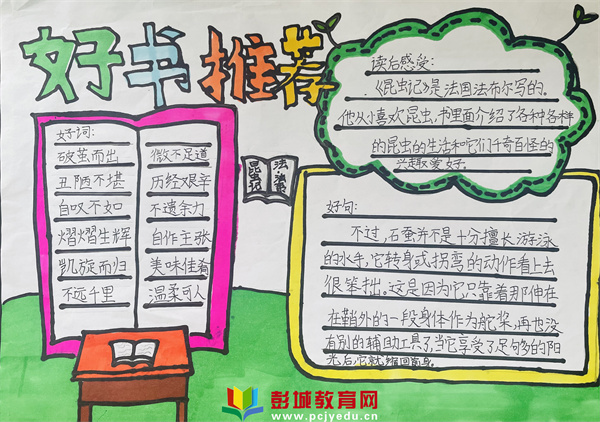 好书推荐
好词：
破茧而出
丑陋不堪
自叹不如
熠熠生辉
凯旋而归
不远千里
微不足道
历经艰辛
不遗余力
自作主张
美味佳肴
温柔可人
昆虫记
法·法布尔
读后感受：
《昆虫记》是法国法布尔写的。
他从小喜欢昆虫，书里面介绍了各种各样
的昆虫的生活和它们千奇百怪的
兴趣爱好。
好句：
不过，石蚕并不是十分擅长游泳
的水手，它转身或拐弯的动作看上去
很笨拙。这是因为它只靠着那伸在
在鞘外的一段身体作为舵桨，再也没
有别的辅助工具了，当它享受了足够多的阳
光后，它就缩回前身。
彭城教育网
www.pcjyedu.cn